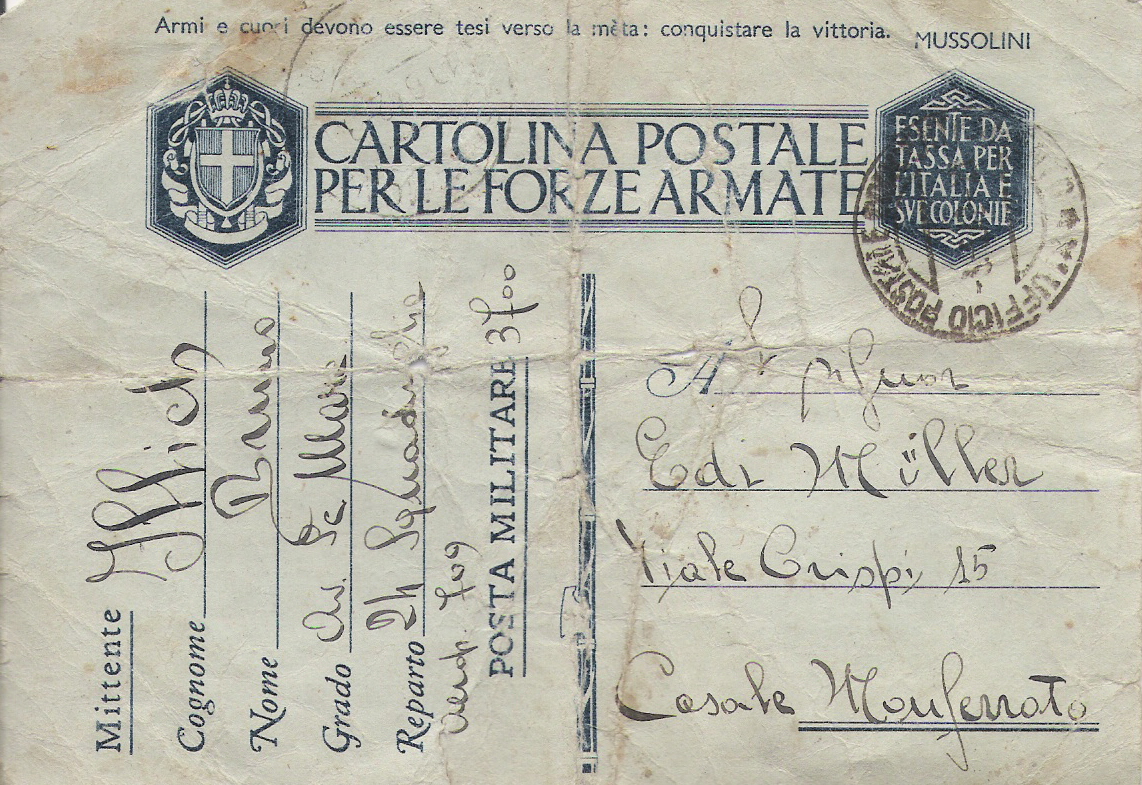 Armi e cuori devono essere tesi verso la mèta: conquistare la vittoria. MUSSOLINI
CARTOLINA POSTALE
PER LE FORZE ARMATE
ESENTE DA
TASSA PER
L'ITALIA E
SVE COLONIE
UFFICIO POSTALE
Mittente
Cognome Iffich
Nome Bruno
Grado Av. Sc Marc
Reparto 24 Squadriglia
Aerop. 709
POSTA MILITARE 3700
Al signor
Edi Müller
Viale Crispi, 15
Casale Monferrato